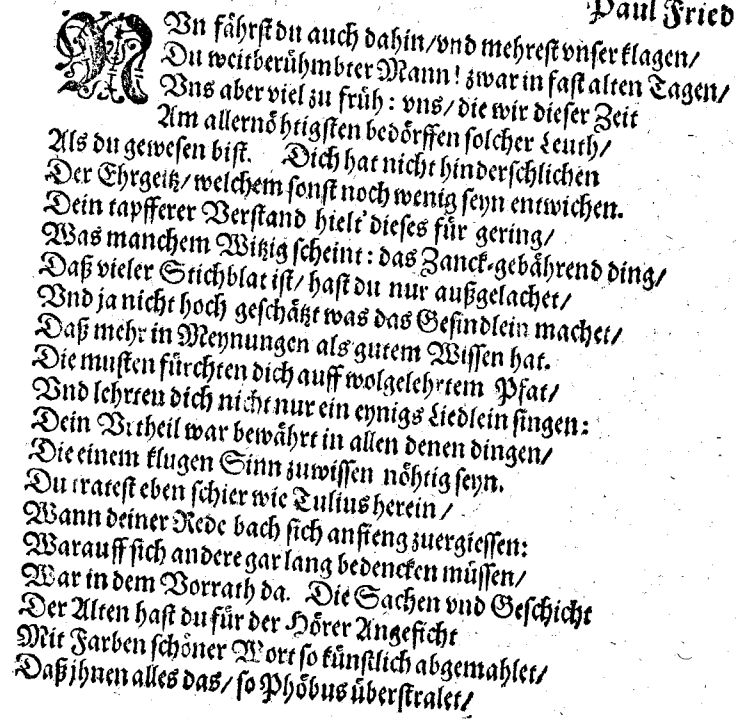 Paul Fried
NVn fährst du auch dahin/ vnd mehrest vnser klagen/
Du weitberühmbter Mann! zwar in fast alten Tagen/
Vns aber viel zu früh: vns/ die wir dieser Zeit
Am allernöhtigsten bedörffen solcher Leuth/
Als du gewesen bist. Dich hat nicht hinderschlichen
Der Ehrgeitz/ welchem sonst noch wenig seyn entwichen.
Dein tapfferer Verstand hielt dieses für gering/
Was manchem Witzig scheint: das Zanck-gebährend ding/
Daß vieler Stichblat ist/ hast du nur außgelachet/
Vnd ja nicht hoch geschätzt was das Gesindlein machet/
Daß mehr in Meynungen als gutem Wissen hat.
Die musten fürchten dich auff wolgelehrtem Pfat/
Vnd lehrten dich nicht nur ein eynigs Liedlein singen:
Dein Vrtheil war bewährt in allen denen dingen/
Die einem klugen Sinn zuwissen nöhtig seyn.
Du tratest eben schier wie Tulius herein/
Wann deiner Rede bach sich anfieng zuergiessen:
Warauff sich andere gar lang bedencken müssen/
War in dem Vorrath da. Die Sachen vnd Geschicht
Der Alten hast du für der Hörer Angesicht
Mit Farben schöner Wort so künstlich abgemahlet/
Daß jhnen alles das/ so Phöbus überstralet/